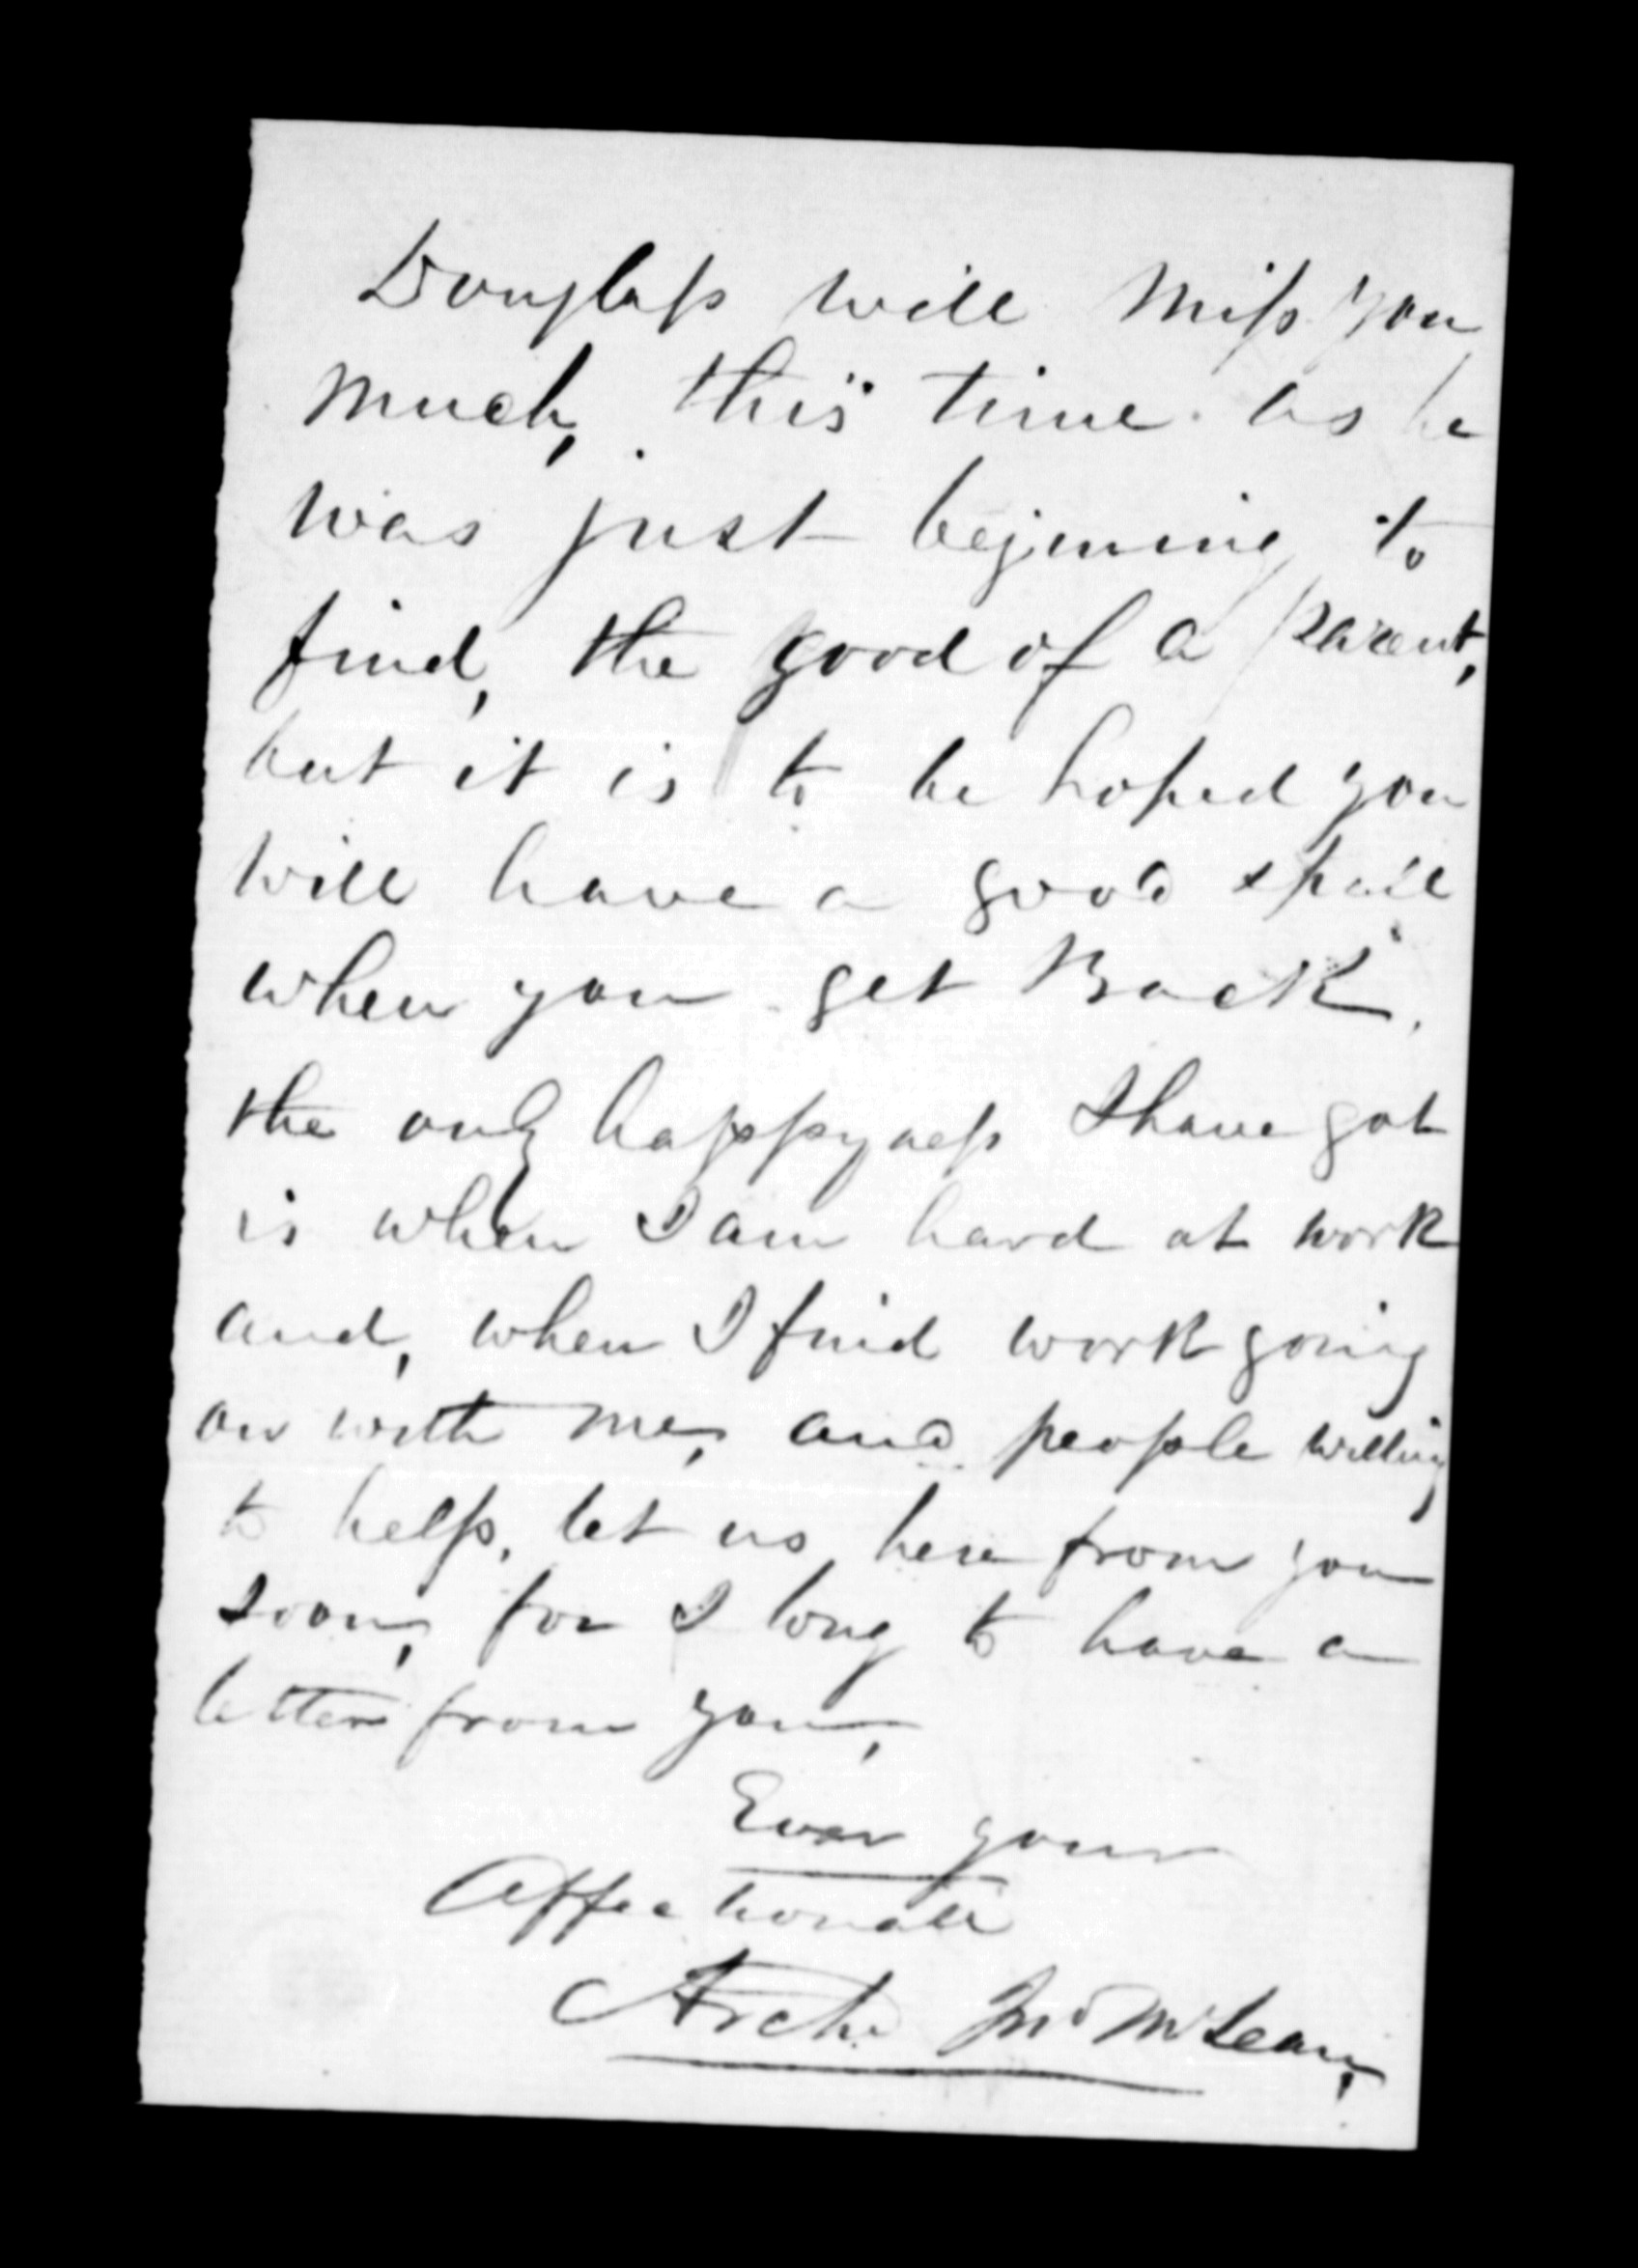 Douglass will miss you
much, this time as he
was just begining to
find, the good of a parent,
but it is to be hoped you
will have a good spell
when you get Back,
the only happyness I have got
is when I am hard at work
and, when I find work going
on with me, and people willing
to help, let us, here from you
soon, for I long to have a
letter from you,
Ever your
Affectionate
Archd Jno McLean,